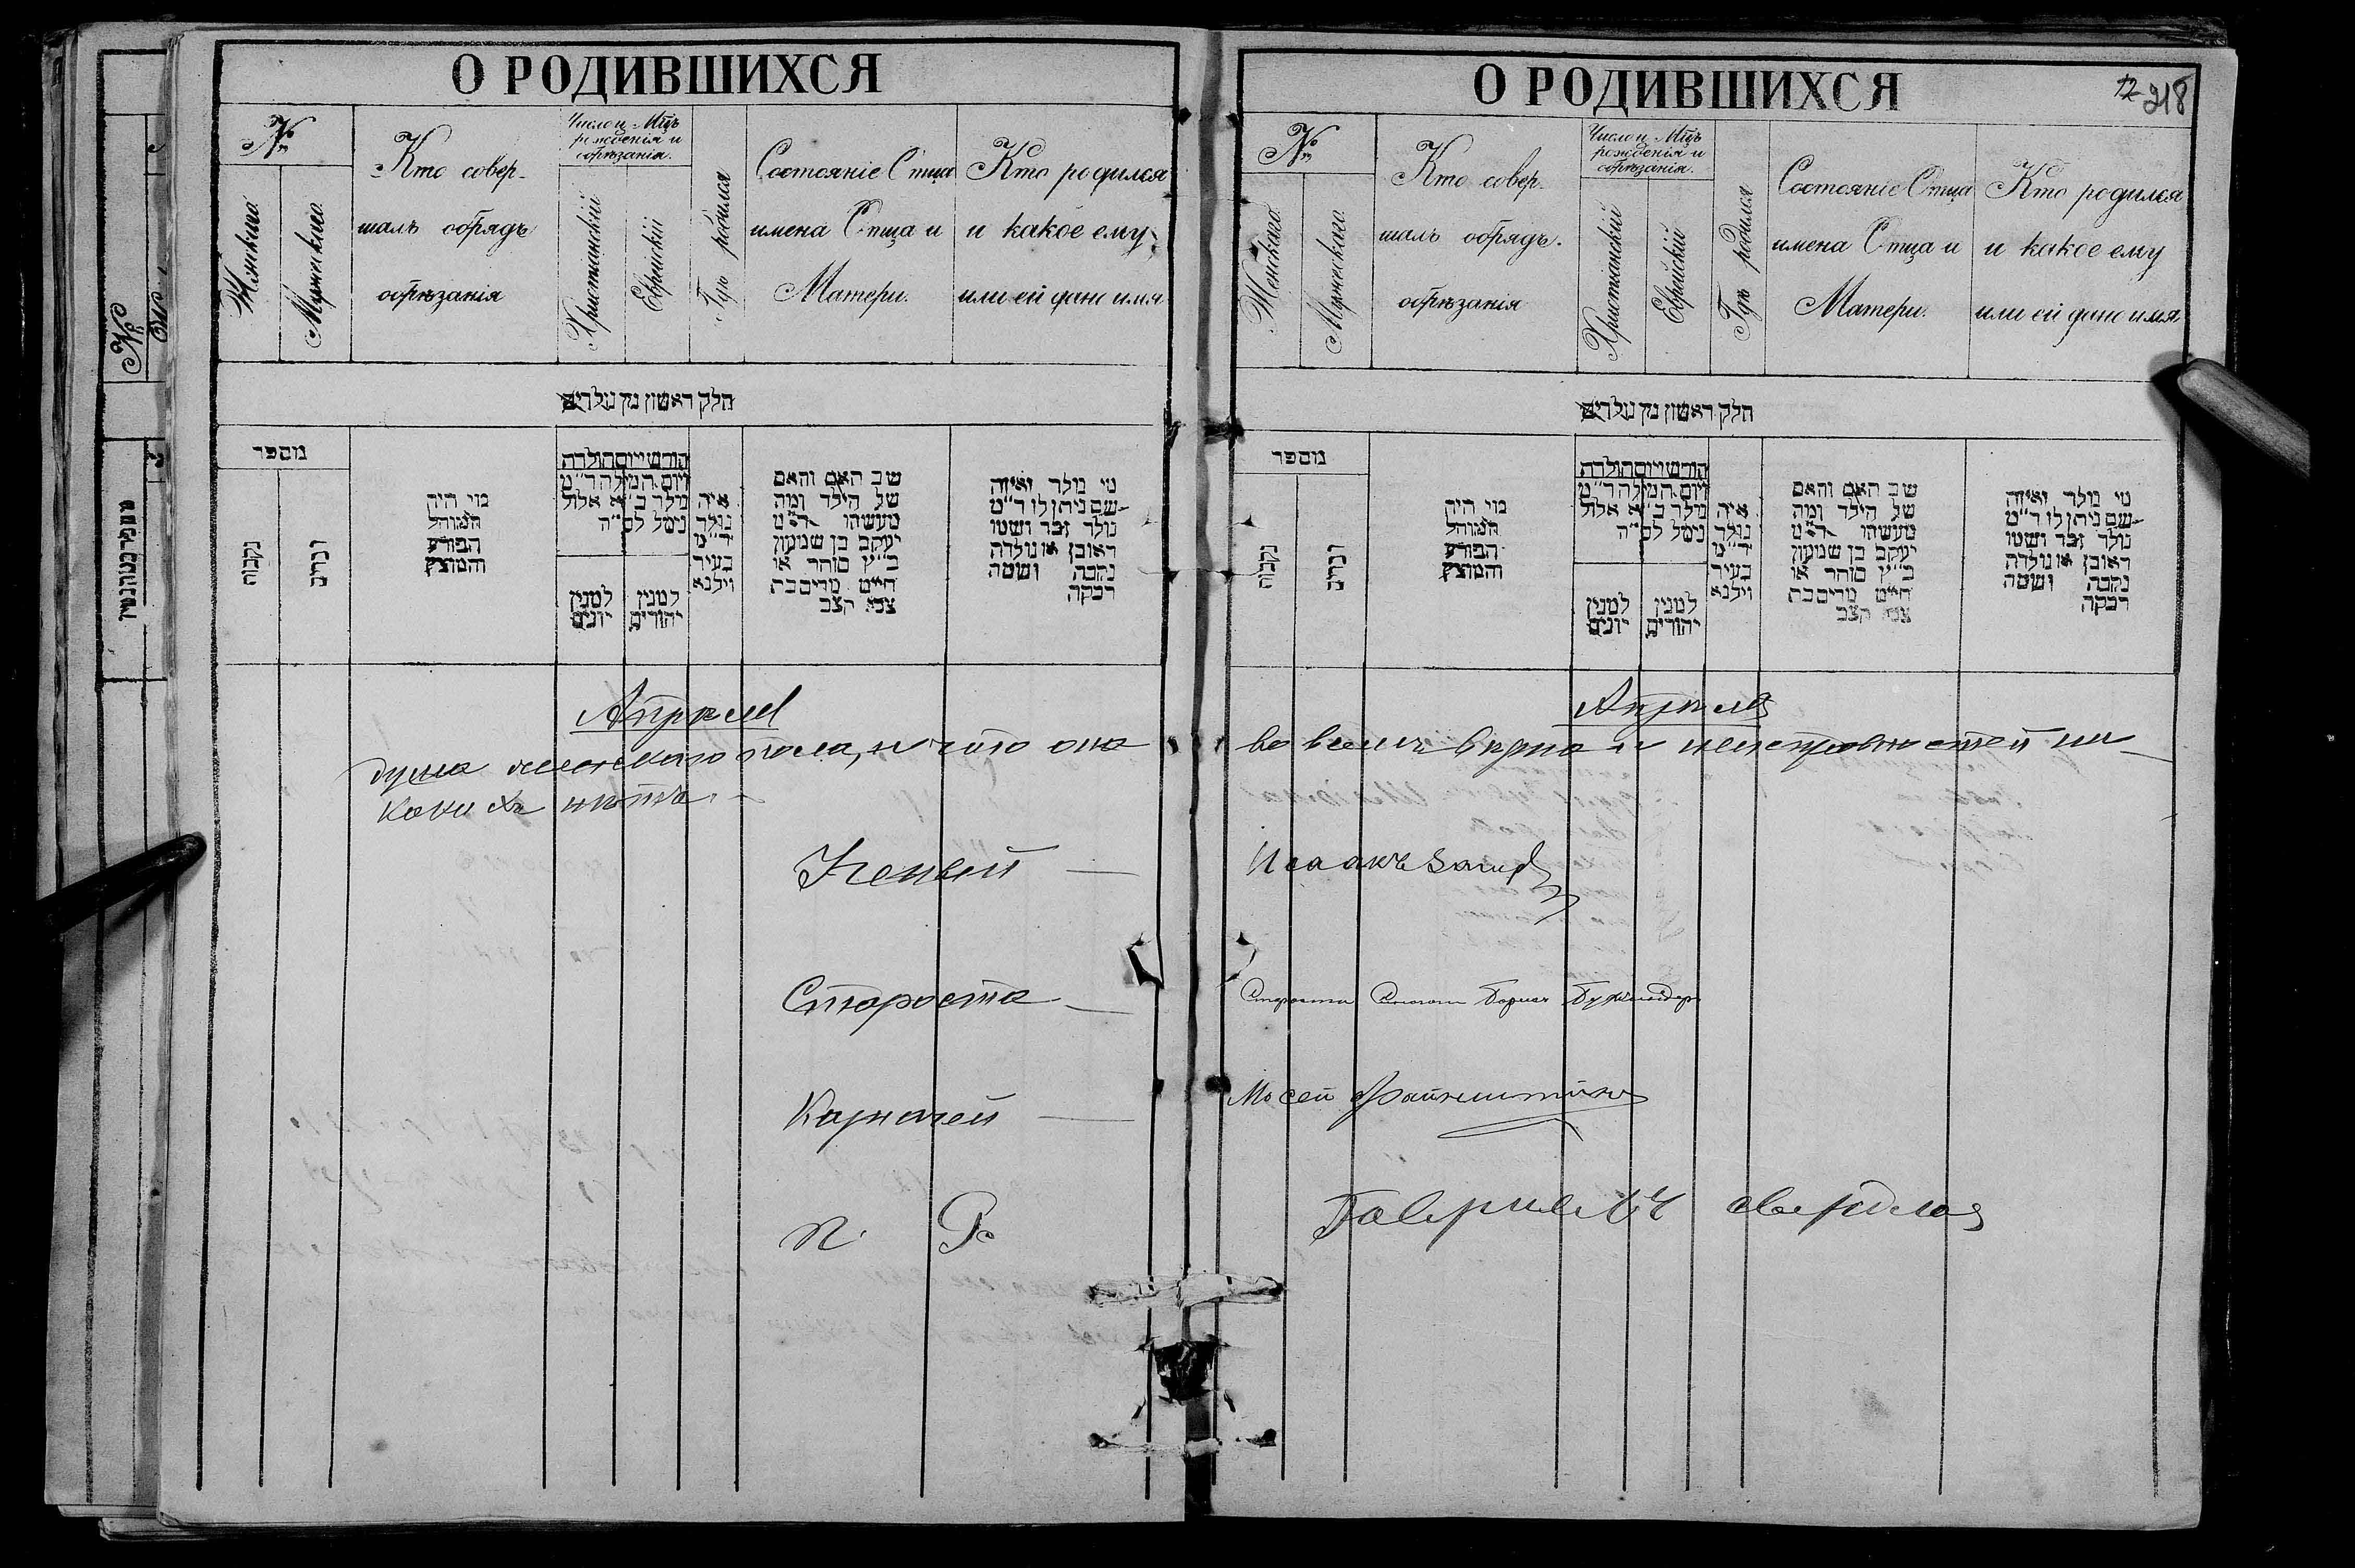 О РОДИВШИХСЯ
№
Женскаго
Мужескаго
Кто совер-
шалъ обрядъ
обрѣзанія
Число и Мѣцъ
рожденія и
обрѣзанія.
Христіанскій
Еврейскій
Гдѣ родился
Состояніе Отца
имена Отца и
Матери.
Кто родился
и какое ему
или ей дано имя
חלק ראשון מן נולדים
מספר
נקבות
זכרים
מי היה
המוהל
הפורע
והמוצץ
חודש ויום הולדת
ויום המילה ד״מ
נולד ב׳ א אלול
נימל לס״ה
למנין
יונים
למנין
יהודים
איה
נולד
ד״מ
בעיר
וילנא
שב האם והאם
של הילד ומה
מעשהו ד״מ
יעקב בן שמעון
כ״ץ סוחר או
חייט מרים בת
צבי קצב
מי נולד ואיזה
שם ניתן לו ד״מ
נולד זכר ושמו
ראובן או נולדה
נקבה ושמה
רבקה
Апрѣля
душа женскаго пола, и что она
какихъ нѣтъ. –
Ученый —
Староста —
Казначей —
П. Р.
О РОДИВШИХСЯ
12 218
№
Женскаго
Мужескаго
Кто совер-
шалъ обрядъ.
обрѣзанія
Число и Мѣцъ
рожденія и
обрѣзанія.
Христіанскій
Еврейскій
Гдѣ родился
Состояніе Отца
имена Отца и
Матери.
Кто родился
и какое ему
или ей дано имя
חלק ראשון מן נולדים
מספר
נקבות
זכרים
מי היה
המוהל
הפורע
והמוצץ
חודש ויום הולדת
ויום המילה ד״מ
נולד ב׳ א אלול
נימל לס״ה
למנין
יונים
למנין
יהודים
איה
נולד
ד״מ
בעיר
וילנא
שב האם והאם
של הילד ומה
מעשהו ד״מ
יעקב בן שמעון
כ״ץ סוחר או
חייט מרים בת
צבי קצב
מי נולד ואיזה
שם ניתן לו ד״מ
נולד זכר ושמו
ראובן או נולדה
נקבה ושמה
רבקה
Апрѣля
во всемъ вѣрна и неисправностей ни-
Исаакъ
Староста Борисъ
Мосей Файнштейнъ
Гавріилъ Свердловъ